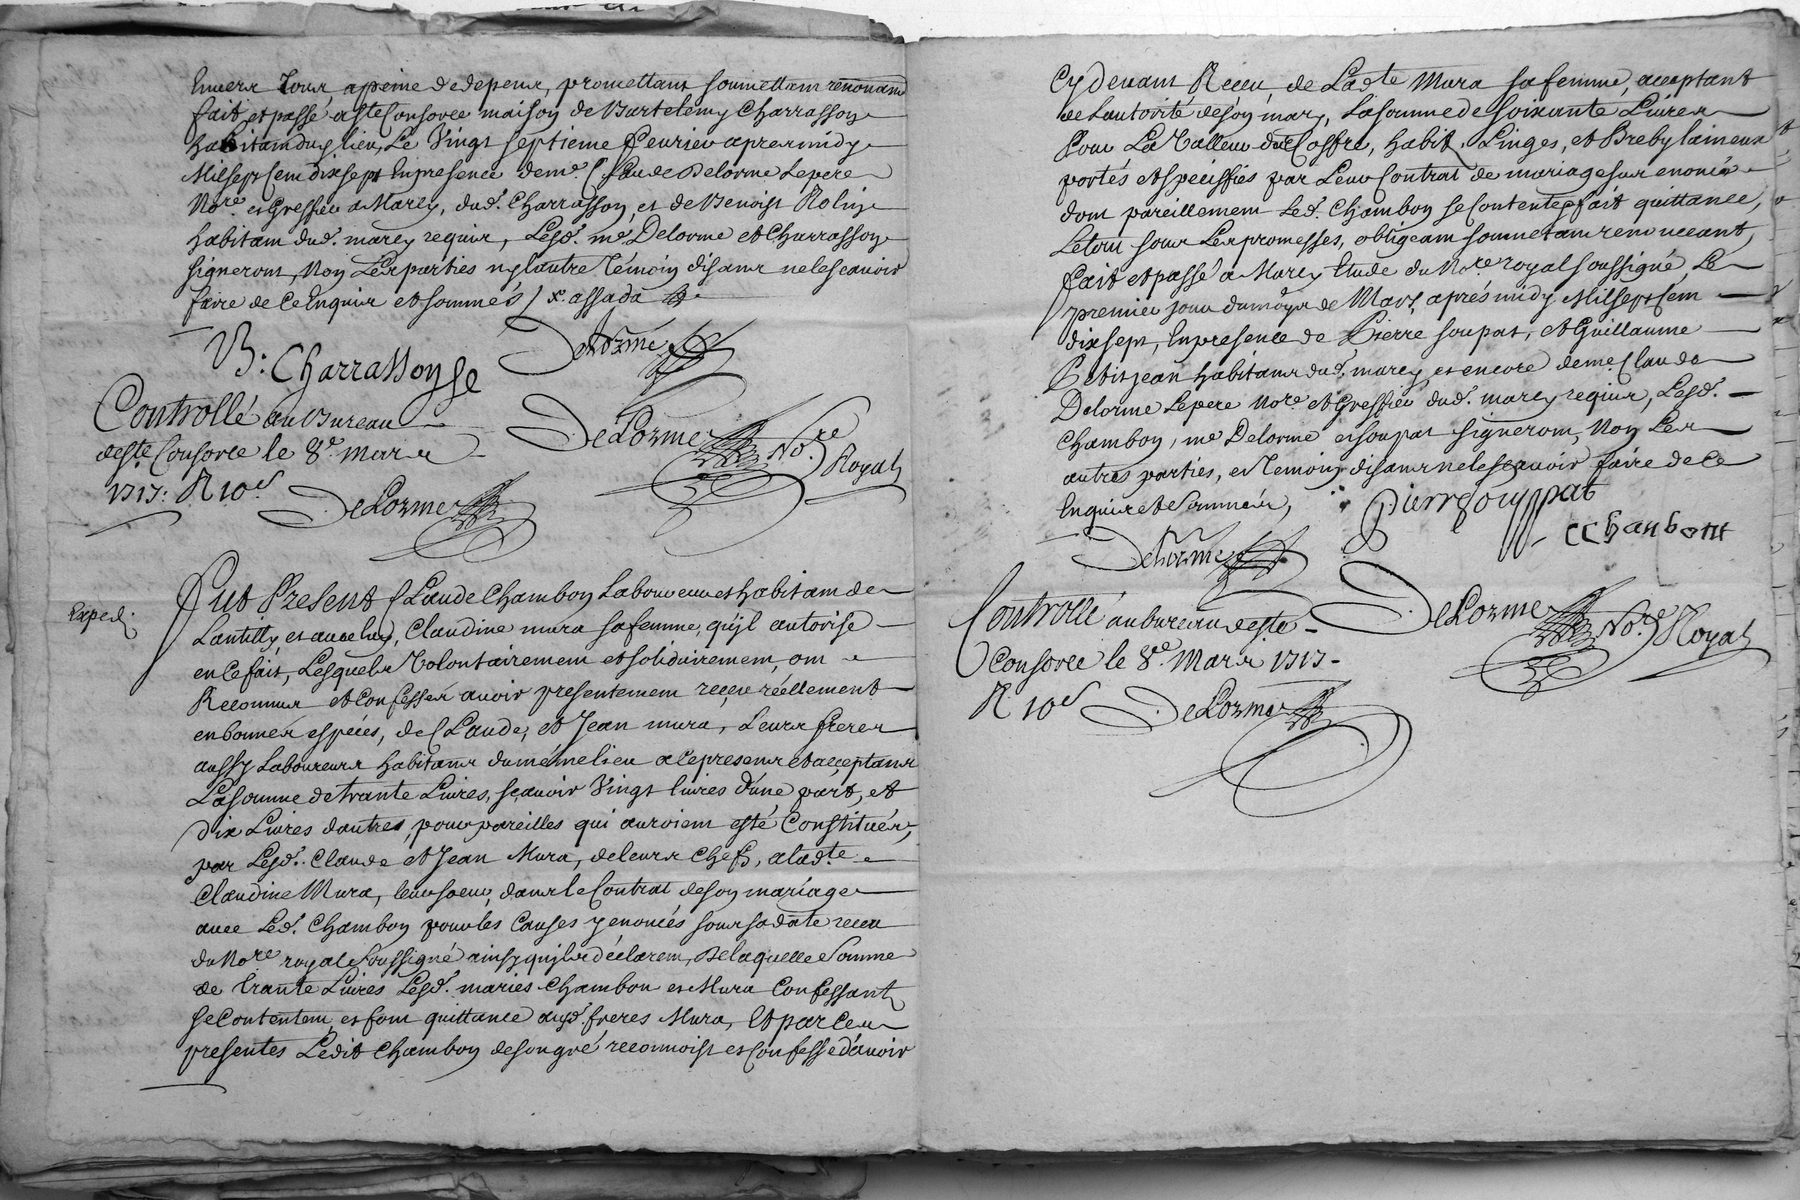 Envers Tous apeine dedepens, promettans soumettans renonans
fait et passé a Ste Consorce maison de Bartelemy Charrasson
habitans duy lieu, Le Vingt septieme fevrier apres midy
Milsept Cens dixsept En presence de me. Claude Delorme Lepere
Nore. et Greffier a Marcy, dud. Charrasson, et de Benoist Rolin
habitans dud. marcy requis, Lesd. me Delorme et Charrasson
signeront, Non Les parties ny l'autre Témoin disans nelescavoir
faire de Ce Enquis et sommés / x assada
B: Charrassonge
Delorme
Controllé au Bureau
de Ste Consorce le 8e. Mars
1717: R 10s
DeLorme
DeLorme No.re Royal
Exped.
fut Present Claude Chambon Laboureur et habitam de
Lantilly, et avec luy, Claudine mura sa femme, qu'jl autorise
en Ce fait, Lesquels Volontairement et solidairement, ont
Reconnus et Confesses avoir presentement receu réellement
en bonnes espéces, de Claude, et Jean mura, Leurs freres
aussy Laboureurs habitans du même lieu a Ce presens et acceptans
La somme de trante Livres, sçavoir Vingt livres d'une part, et
dix Livres d'autres, pour pareilles qui auroient esté Constitués,
par Lesd. Claude et Jean Mura, de leurs Chefs, a lad.te
Claudine Mura, leur soeur, dans le Contrat de son mariage
avec Led. Chambon pour les Causes y enoncés sous sa date receu
du Nore royal soussigné ainsy qu'jls déclarent, De laquelle Somme
de trante Livres Lesd. mariés Chambon et Mura Confessant
se Contentent et font quittance ausd. freres Mura, Et par Ces
presentes Ledit Chambon de son gré reconnoist et Confesse d'avoir
Cy devant Receu, de Lad.te Mura sa femme, acceptant
de L'autorité de son mary, La somme de soixante Livres
Pour La Valleur du Coffre, habit, Linges, et Breby laineux
portés et spéciffiés par Leur Contrat de mariage sus enoncé
dont pareillement Led. Chambon se Contente, et fait quittance,
Le tout sous Les promesses, obligeans soumettans renonceant,
fait et passé a Marcy Etude du Nore royal soussigné, Le
premier jour du moys de Mars, aprés midy Milsept Cens
dixsept, En presence de Pierre soupat, et Guillaume
Petitjean habitans dud. marcy, et encore de me. Claude
Delorme Lepere Nore. et Greffier dud. marcy requis, Lesd.
Chambon, me Delorme et soupat signeront, Non Les
autres parties, et Temoin disans nelesçavoir faire de Ce
Enquis et Sommés,
Pierre Souppat
CChanbont
Delorme
DeLorme No.re Royal
Controllé au bureau de Ste
Consorce le 8e. Mars 1717
R 10s
DeLorme